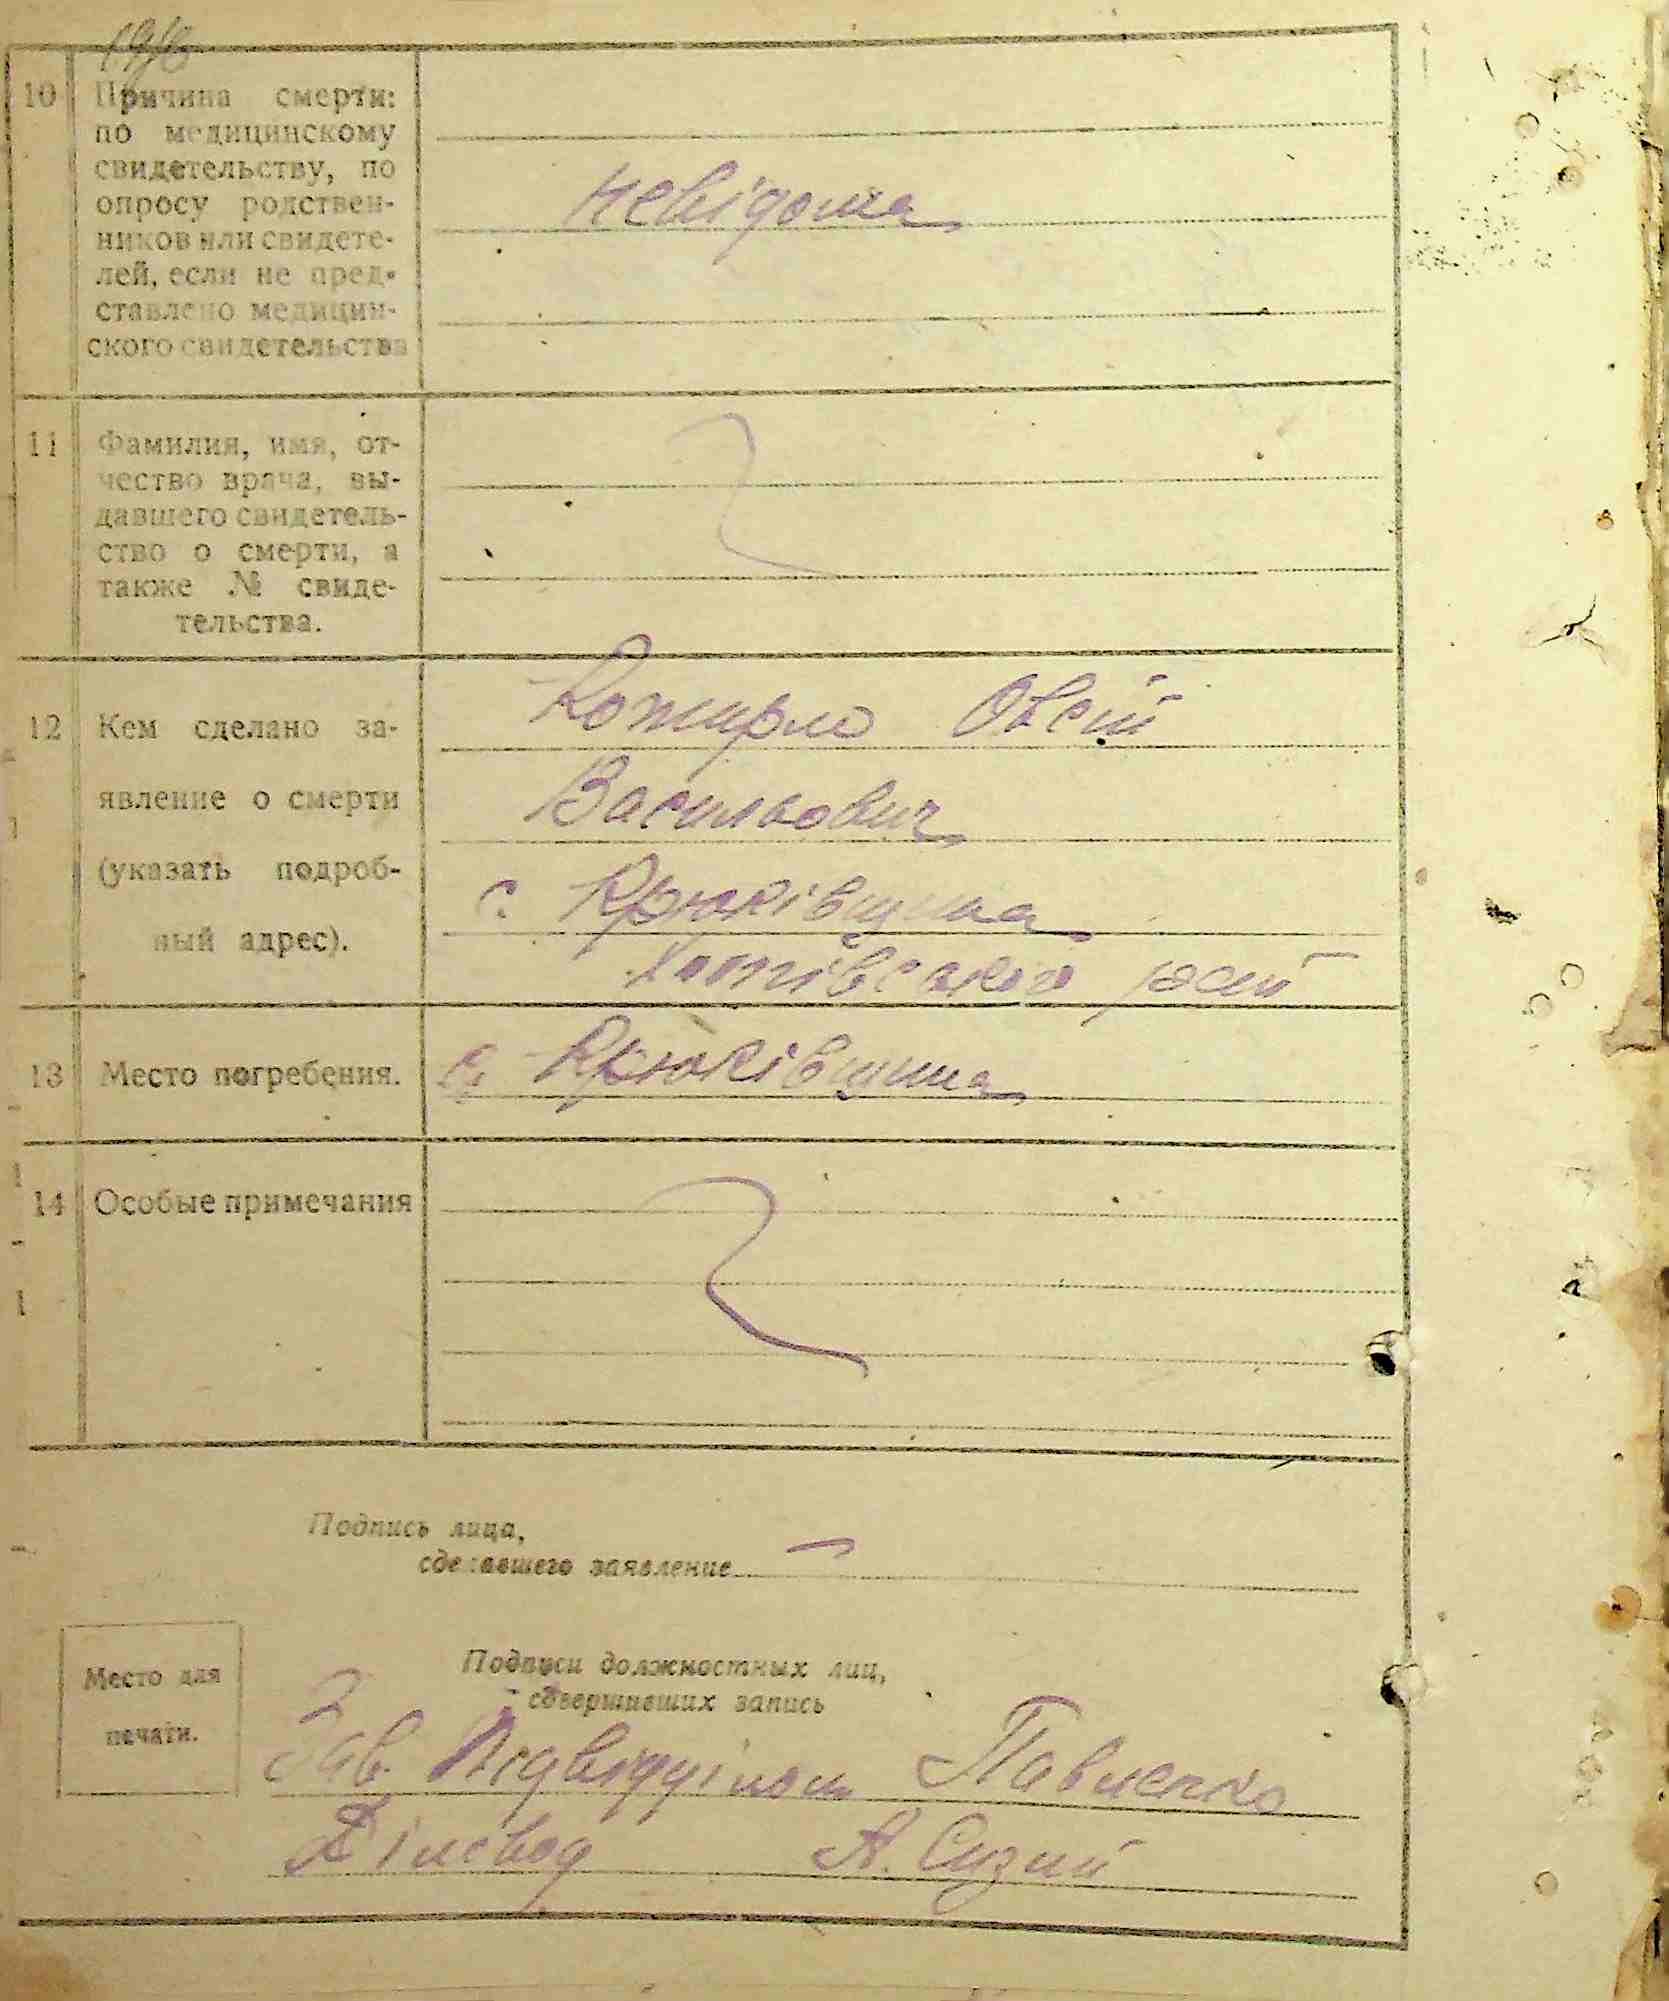 10 Причина смерти:
по медицинскому
свидетельству, по
опросу родствен-
ников или свидете-
лей, если не пред-
ставлено медицин-
ского свидетельства
невідома
11 Фамилия, имя, от-
чество врача, вы-
давшего свидетель-
ство о смерти, а
также № свиде-
тельства.
12 Кем сделано за-
явление о смерти
(указать подроб-
ный адрес).
Кожирло Овсій
Васильович
с. Крюківщина
Хотівського рай
13 Место погребения. с. Крюківщина
14 Особые примечания
Подпись лица,
сделавшего заявление
Место для
печати.
Подписи должностных лиц,
совершивших запись
Зав. Підвідділом Павленко
Діловод А. Сизий